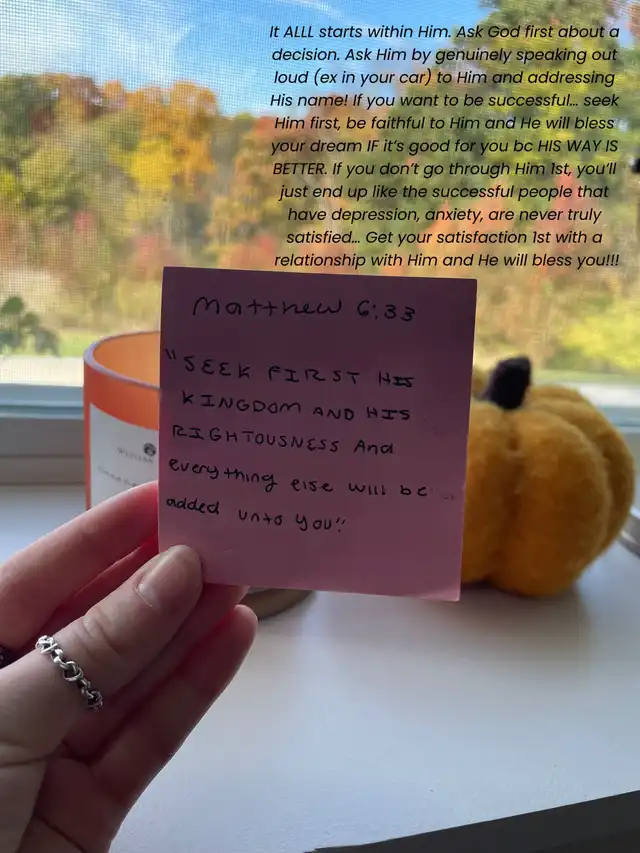 It ALLL starts within Him. Ask God first about a
decision. Ask Him by genuinely speaking out
loud (ex in your car) to Him and addressing
His name! If you want to be successful... seek
Him first, be faithful to Him and He will bless
your dream IF it's good for you bc HIS WAY IS
BETTER. If you don't go through Him 1st, you'll
just end up like the successful people that
have depression, anxiety, are never truly
satisfied... Get your satisfaction 1st with a
relationship with Him and He will bless you!!!
Matthew 6:33
"SEEK FIRST HIS
KINGDOM AND HIS
RIGHTOUSNESS And
everything else will be
added unto you"